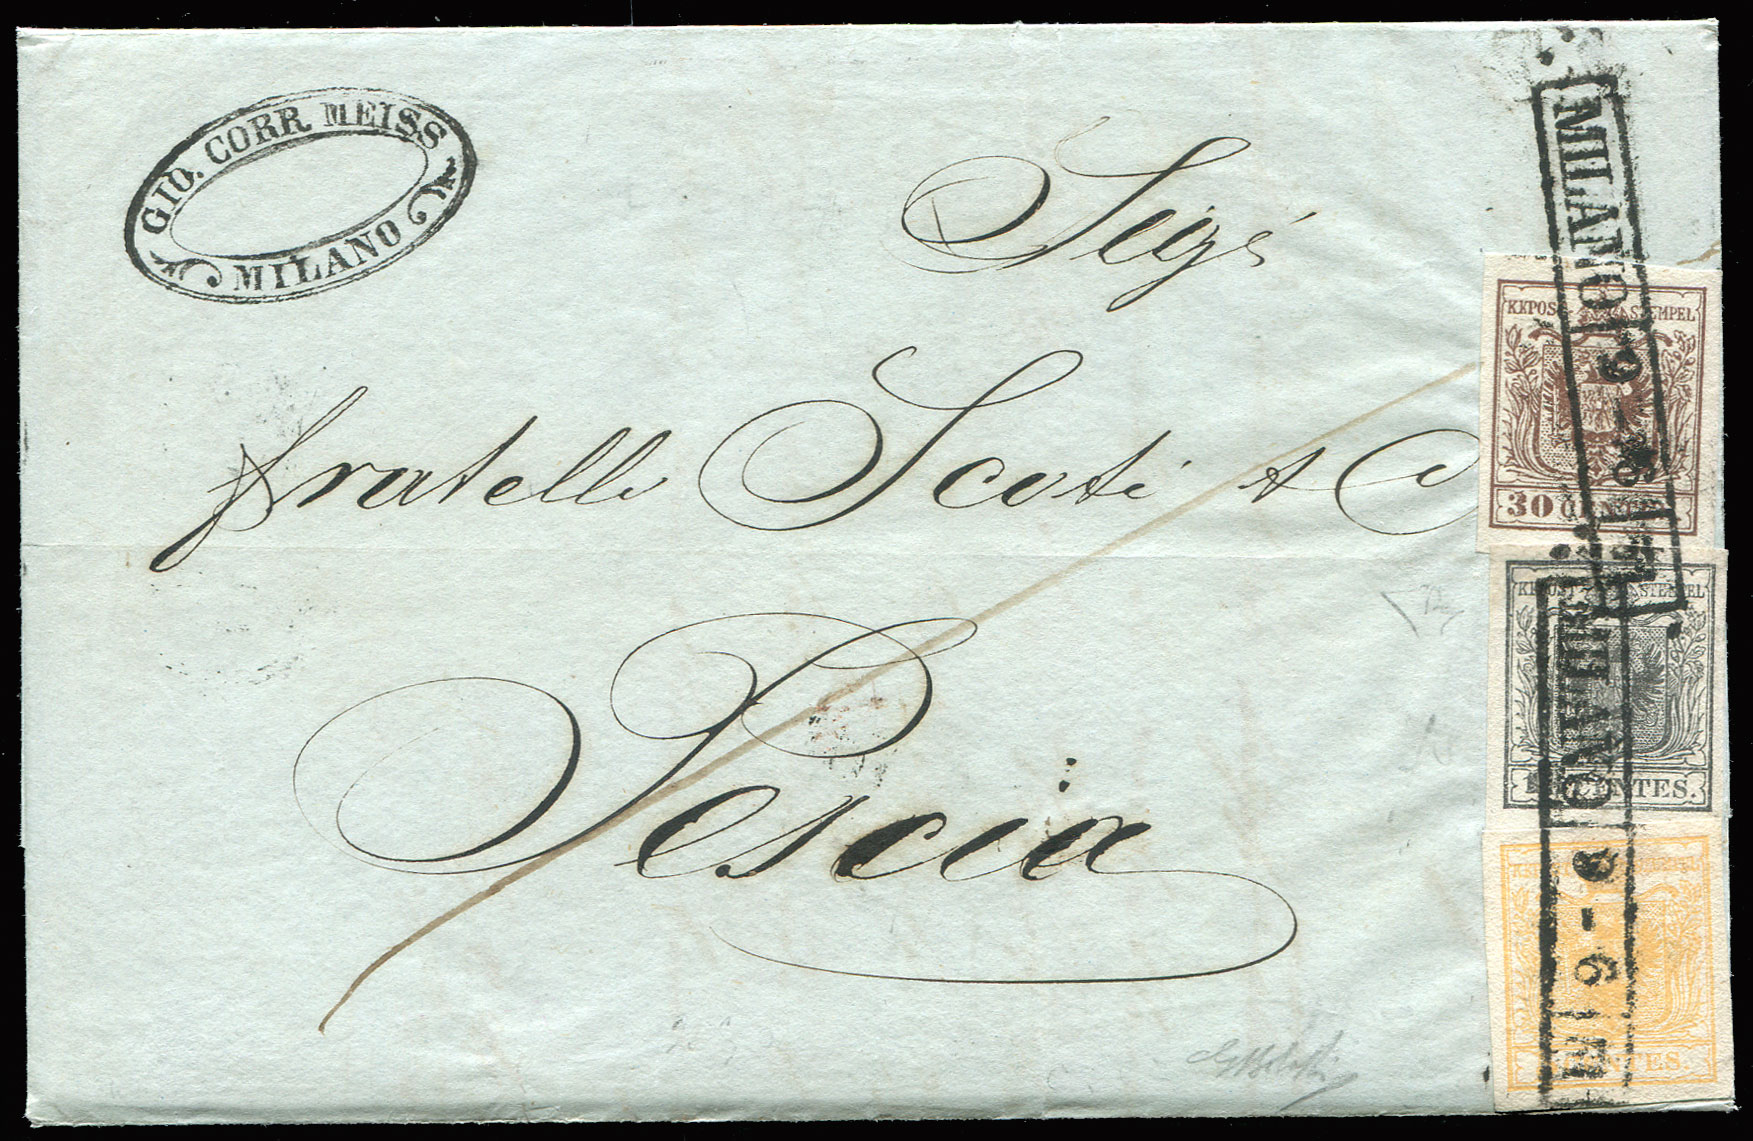 GIO. CORR. MEISS
MILANO
Sigri
fratelli Scoti & C
Pescia
MILANO
KKPOST STEMPEL
30 CENTES.
KKPOST STEMPEL
CENTES.
CENTES.